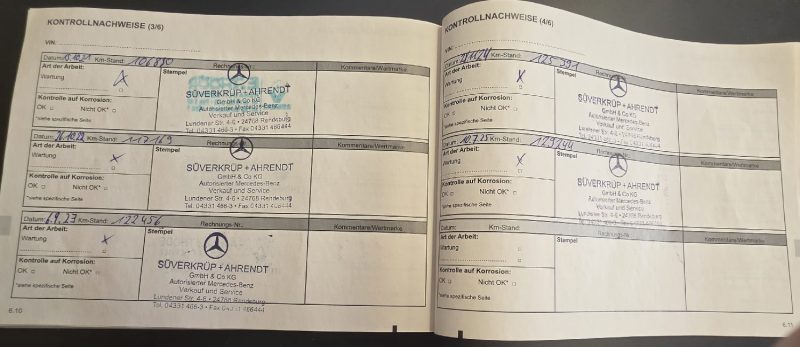 KONTROLLNACHWEISE (3/6)
VIN:
Datum: Km-Stand: 106880
Art der Arbeit:
Wartung X
Kontrolle auf Korrosion:
OK Nicht OK*
*siehe spezifische Seite
Stempel
Kommentare/Wertmarke
SÜVERKRÜP+AHRENDT
GmbH & Co KG
Autorisierter Mercedes-Benz
Verkauf und Service
Lundener Str. 4-6 • 24768 Rendsburg
Tel. 04331 466-3 • Fax 04331 466444
Datum: Km-Stand: 117169
Art der Arbeit:
Wartung X
Kontrolle auf Korrosion:
OK Nicht OK*
*siehe spezifische Seite
Stempel
Kommentare/Wertmarke
SÜVERKRÜP+AHRENDT
GmbH & Co KG
Autorisierter Mercedes-Benz
Verkauf und Service
Lundener Str. 4-6 • 24768 Rendsburg
Tel. 04331 466-3 • Fax 04331 466444
Datum: 6.9.23 Km-Stand: 122456
Rechnungs-Nr.:
Art der Arbeit:
Wartung X
Kontrolle auf Korrosion:
OK Nicht OK*
*siehe spezifische Seite
Stempel
Kommentare/Wertmarke
SÜVERKRÜP+AHRENDT
GmbH & Co KG
Autorisierter Mercedes-Benz
Verkauf und Service
Lundener Str. 4-6 • 24768 Rendsburg
Tel. 04331 466-3 • Fax 04331 466444
6.10
KONTROLLNACHWEISE (4/6)
VIN:
Datum: Km-Stand: 125391
Art der Arbeit:
Wartung X
Kontrolle auf Korrosion:
OK Nicht OK*
*siehe spezifische Seite
Stempel
Kommentare/Wertmarke
SÜVERKRÜP+AHRENDT
GmbH & Co KG
Autorisierter Mercedes-Benz
Verkauf und Service
Datum: Km-Stand:
Art der Arbeit:
Wartung X
Kontrolle auf Korrosion:
OK Nicht OK*
*siehe spezifische Seite
Stempel
Kommentare/Wertmarke
SÜVERKRÜP+AHRENDT
GmbH & Co KG
Autorisierter Mercedes-Benz
Verkauf und Service
Datum: Km-Stand:
Rechnungs-Nr.
Art der Arbeit:
Wartung
Kontrolle auf Korrosion:
OK Nicht OK*
*siehe spezifische Seite
Stempel
Kommentare/Wertmarke
6.11